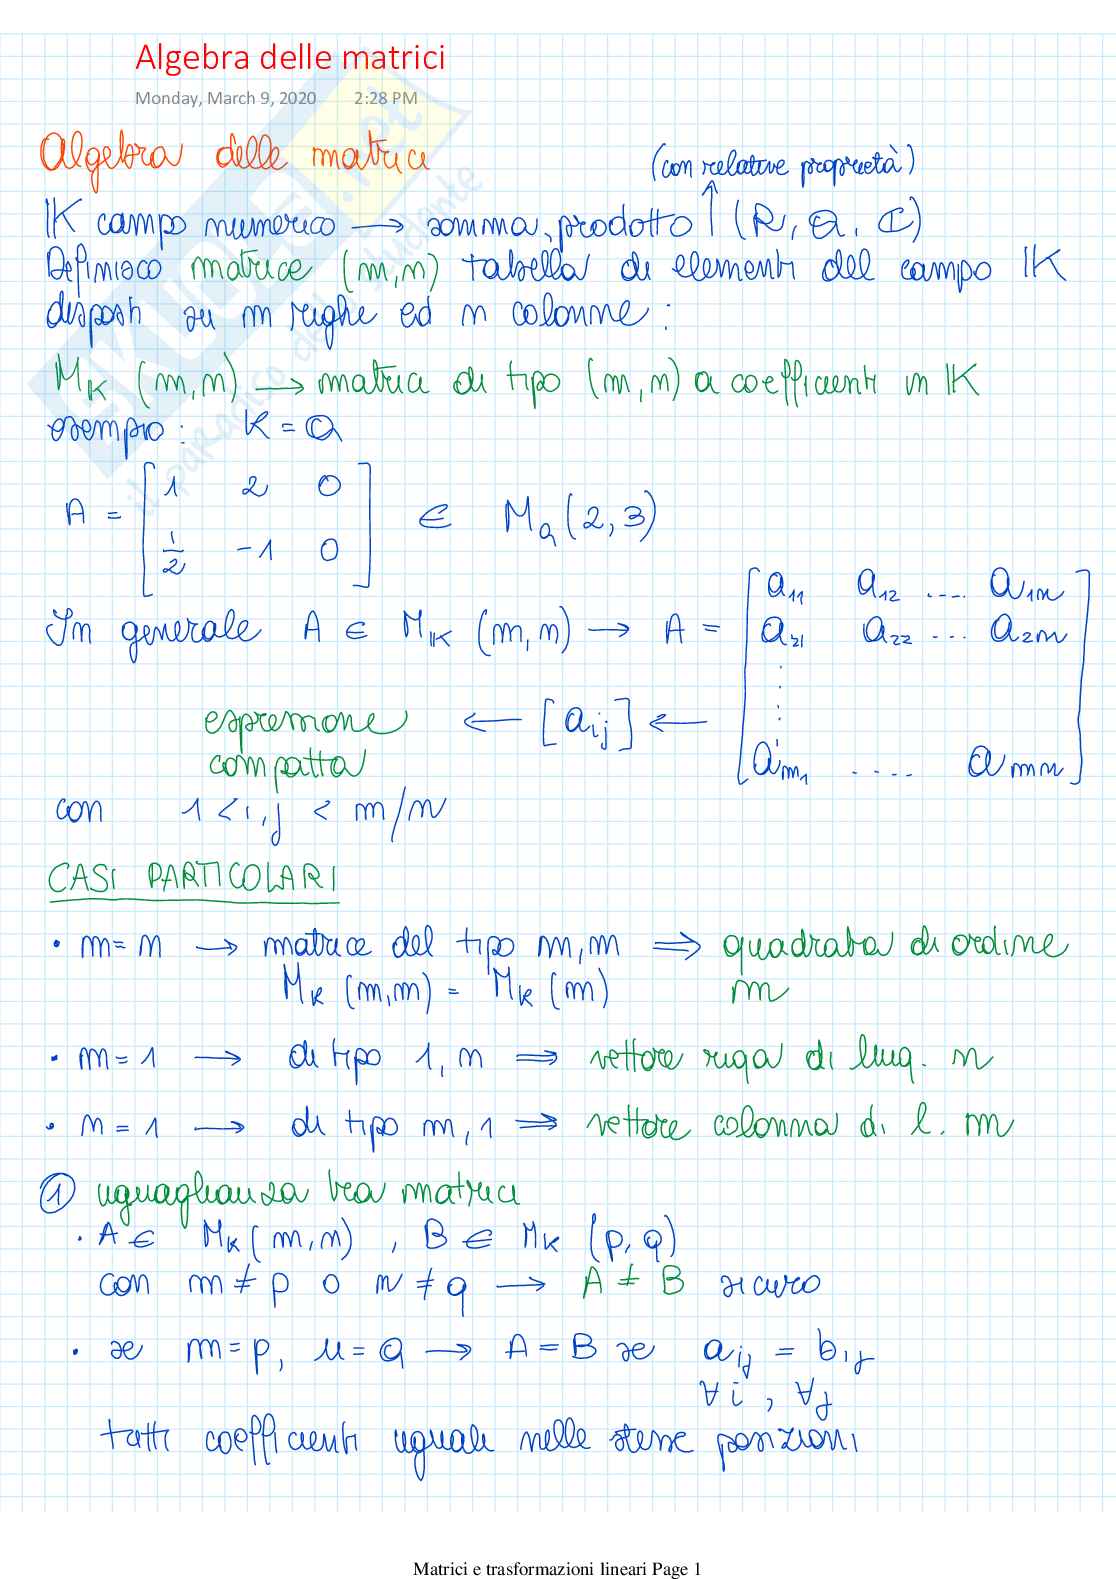 Algebra delle matrici
Monday, March 9, 2020 2:28 PM
Algebra delle matrici
(con relative proprietà)
IK campo numerico → somma, prodotto ↑ (R, Q, C)
Definisco matrice (m,n) tabella di elementi del campo IK
disposti su m righe ed n colonne:
M_K (m,n) → matrici di tipo (m,n) a coefficienti in IK
esempio: K = Q
A = [ 1 2 0
1/2 -1 0 ] ∈ M_Q (2,3)
In generale A ∈ M_IK (m,n) → A = [ a₁₁ a₁₂ .... a₁n
a₂₁ a₂₂ ... a₂n
⋮
am₁ .... amn ]
espressione ← [aij] ←
compatta
con 1 < i,j < m/n
CASI PARTICOLARI
• m = n → matrice del tipo m,m ⇒ quadrata di ordine
M_K (m,m) = M_K (m) m
• m = 1 → di tipo 1,n ⇒ vettore riga di lung. n
• n = 1 → di tipo m,1 ⇒ vettore colonna di l. m
① uguaglianza tra matrici
• A ∈ M_K (m,n) , B ∈ M_K (p,q)
con m ≠ p o n ≠ q → A ≠ B sicuro
• se m = p, n = q → A = B se aij = bij
∀i , ∀j
tutti coefficienti uguali nelle stesse posizioni
Matrici e trasformazioni lineari Page 1
SKUOLA.net
il paradiso dello studente